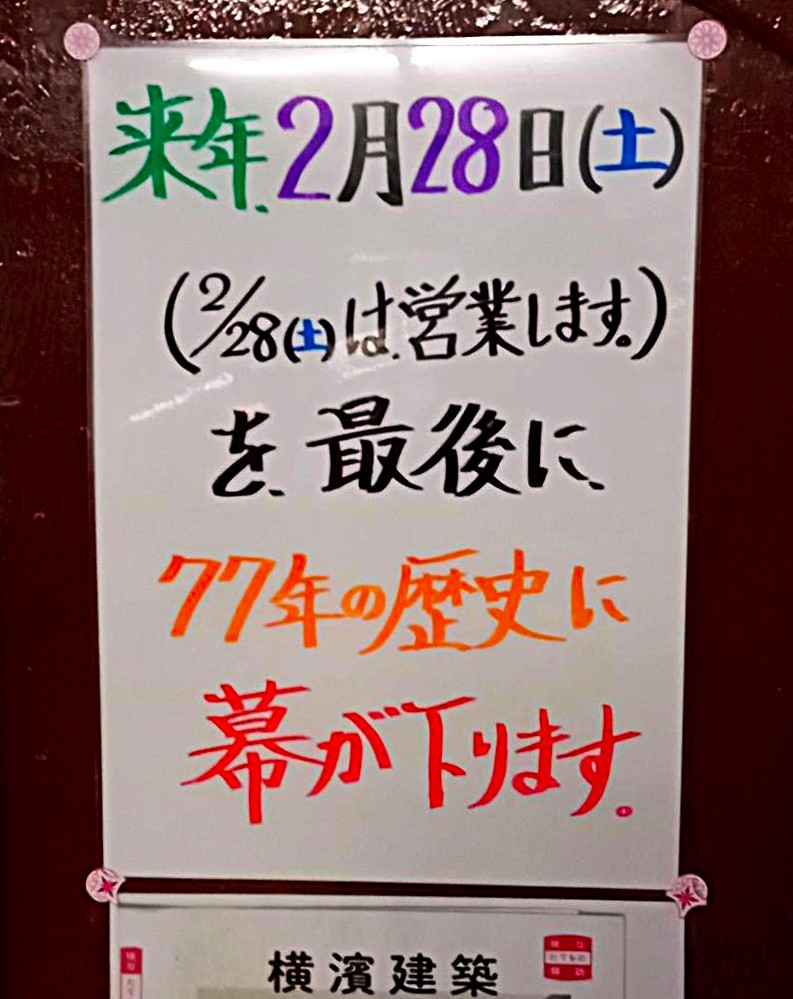 来年、2月28日(土)
(2/28(土)は、営業します。)
を、最後に、
77年の歴史に
幕が下ります。
横濱建築